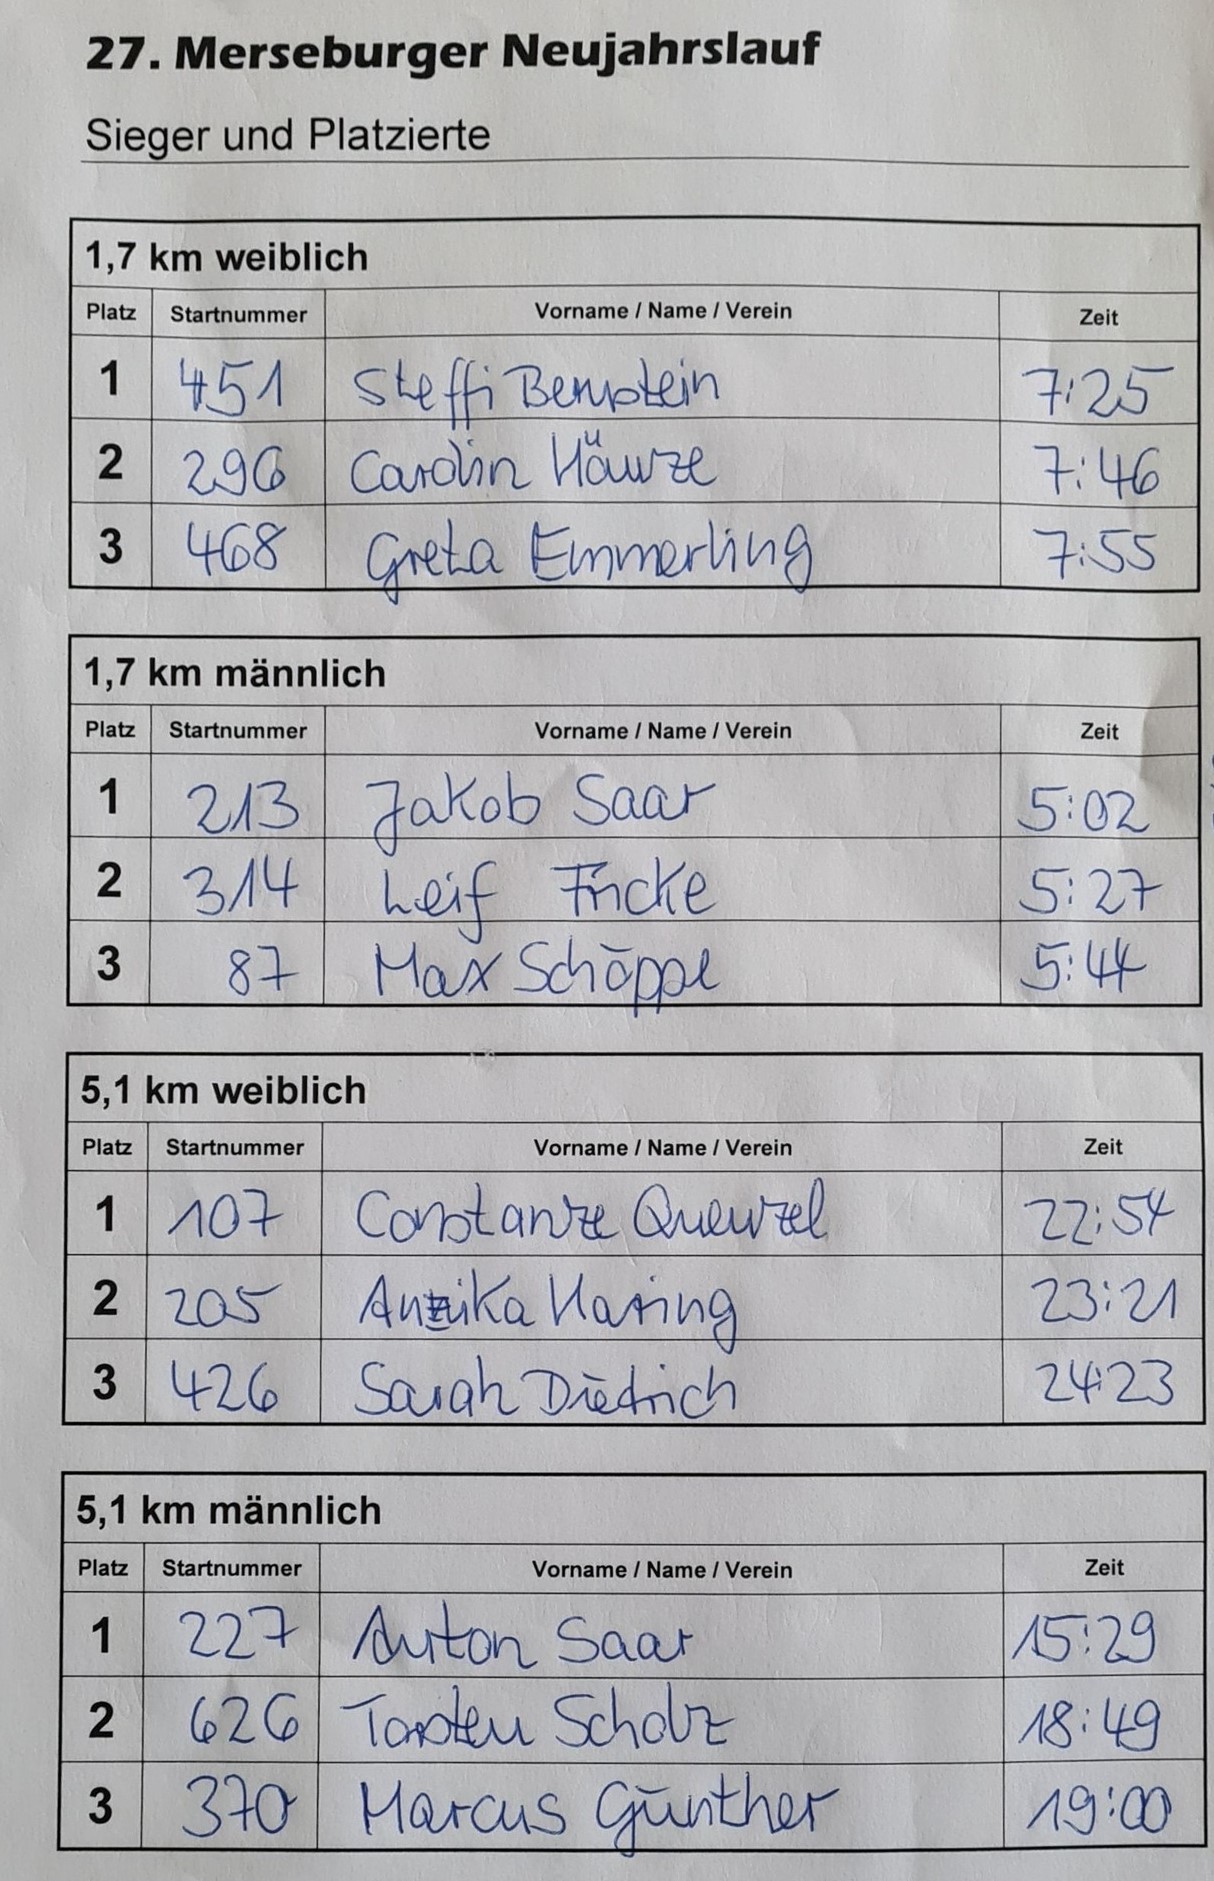 27. Merseburger Neujahrslauf
Sieger und Platzierte
1,7 km weiblich
Platz Startnummer Vorname / Name / Verein Zeit
1 451 Steffi Bernstein 7:25
2 296 Carolin Häunze 7:46
3 468 Greta Emmerling 7:55
1,7 km männlich
Platz Startnummer Vorname / Name / Verein Zeit
1 213 Jakob Saar 5:02
2 314 Leif Fricke 5:27
3 87 Max Schöppe 5:44
5,1 km weiblich
Platz Startnummer Vorname / Name / Verein Zeit
1 107 Constanze Quenzel 22:54
2 205 Annika Haring 23:21
3 426 Sarah Diedrich 24:23
5,1 km männlich
Platz Startnummer Vorname / Name / Verein Zeit
1 227 Anton Saar 15:29
2 626 Torsten Scholz 18:49
3 370 Marcus Günther 19:00